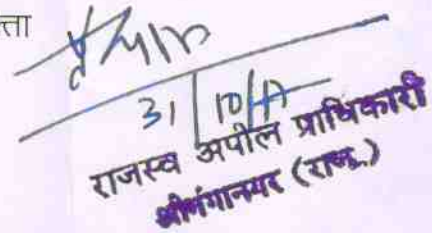 त्ता
31/10/17
राजस्व अपील प्राधिकारी
श्रीगंगानगर (राज.)